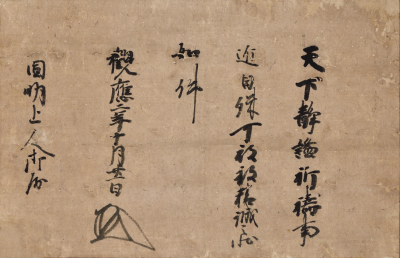 天下静謐祈祷事
近日殊可被致精誠之
如件
觀應二年十月廿三日
圓明上人御房